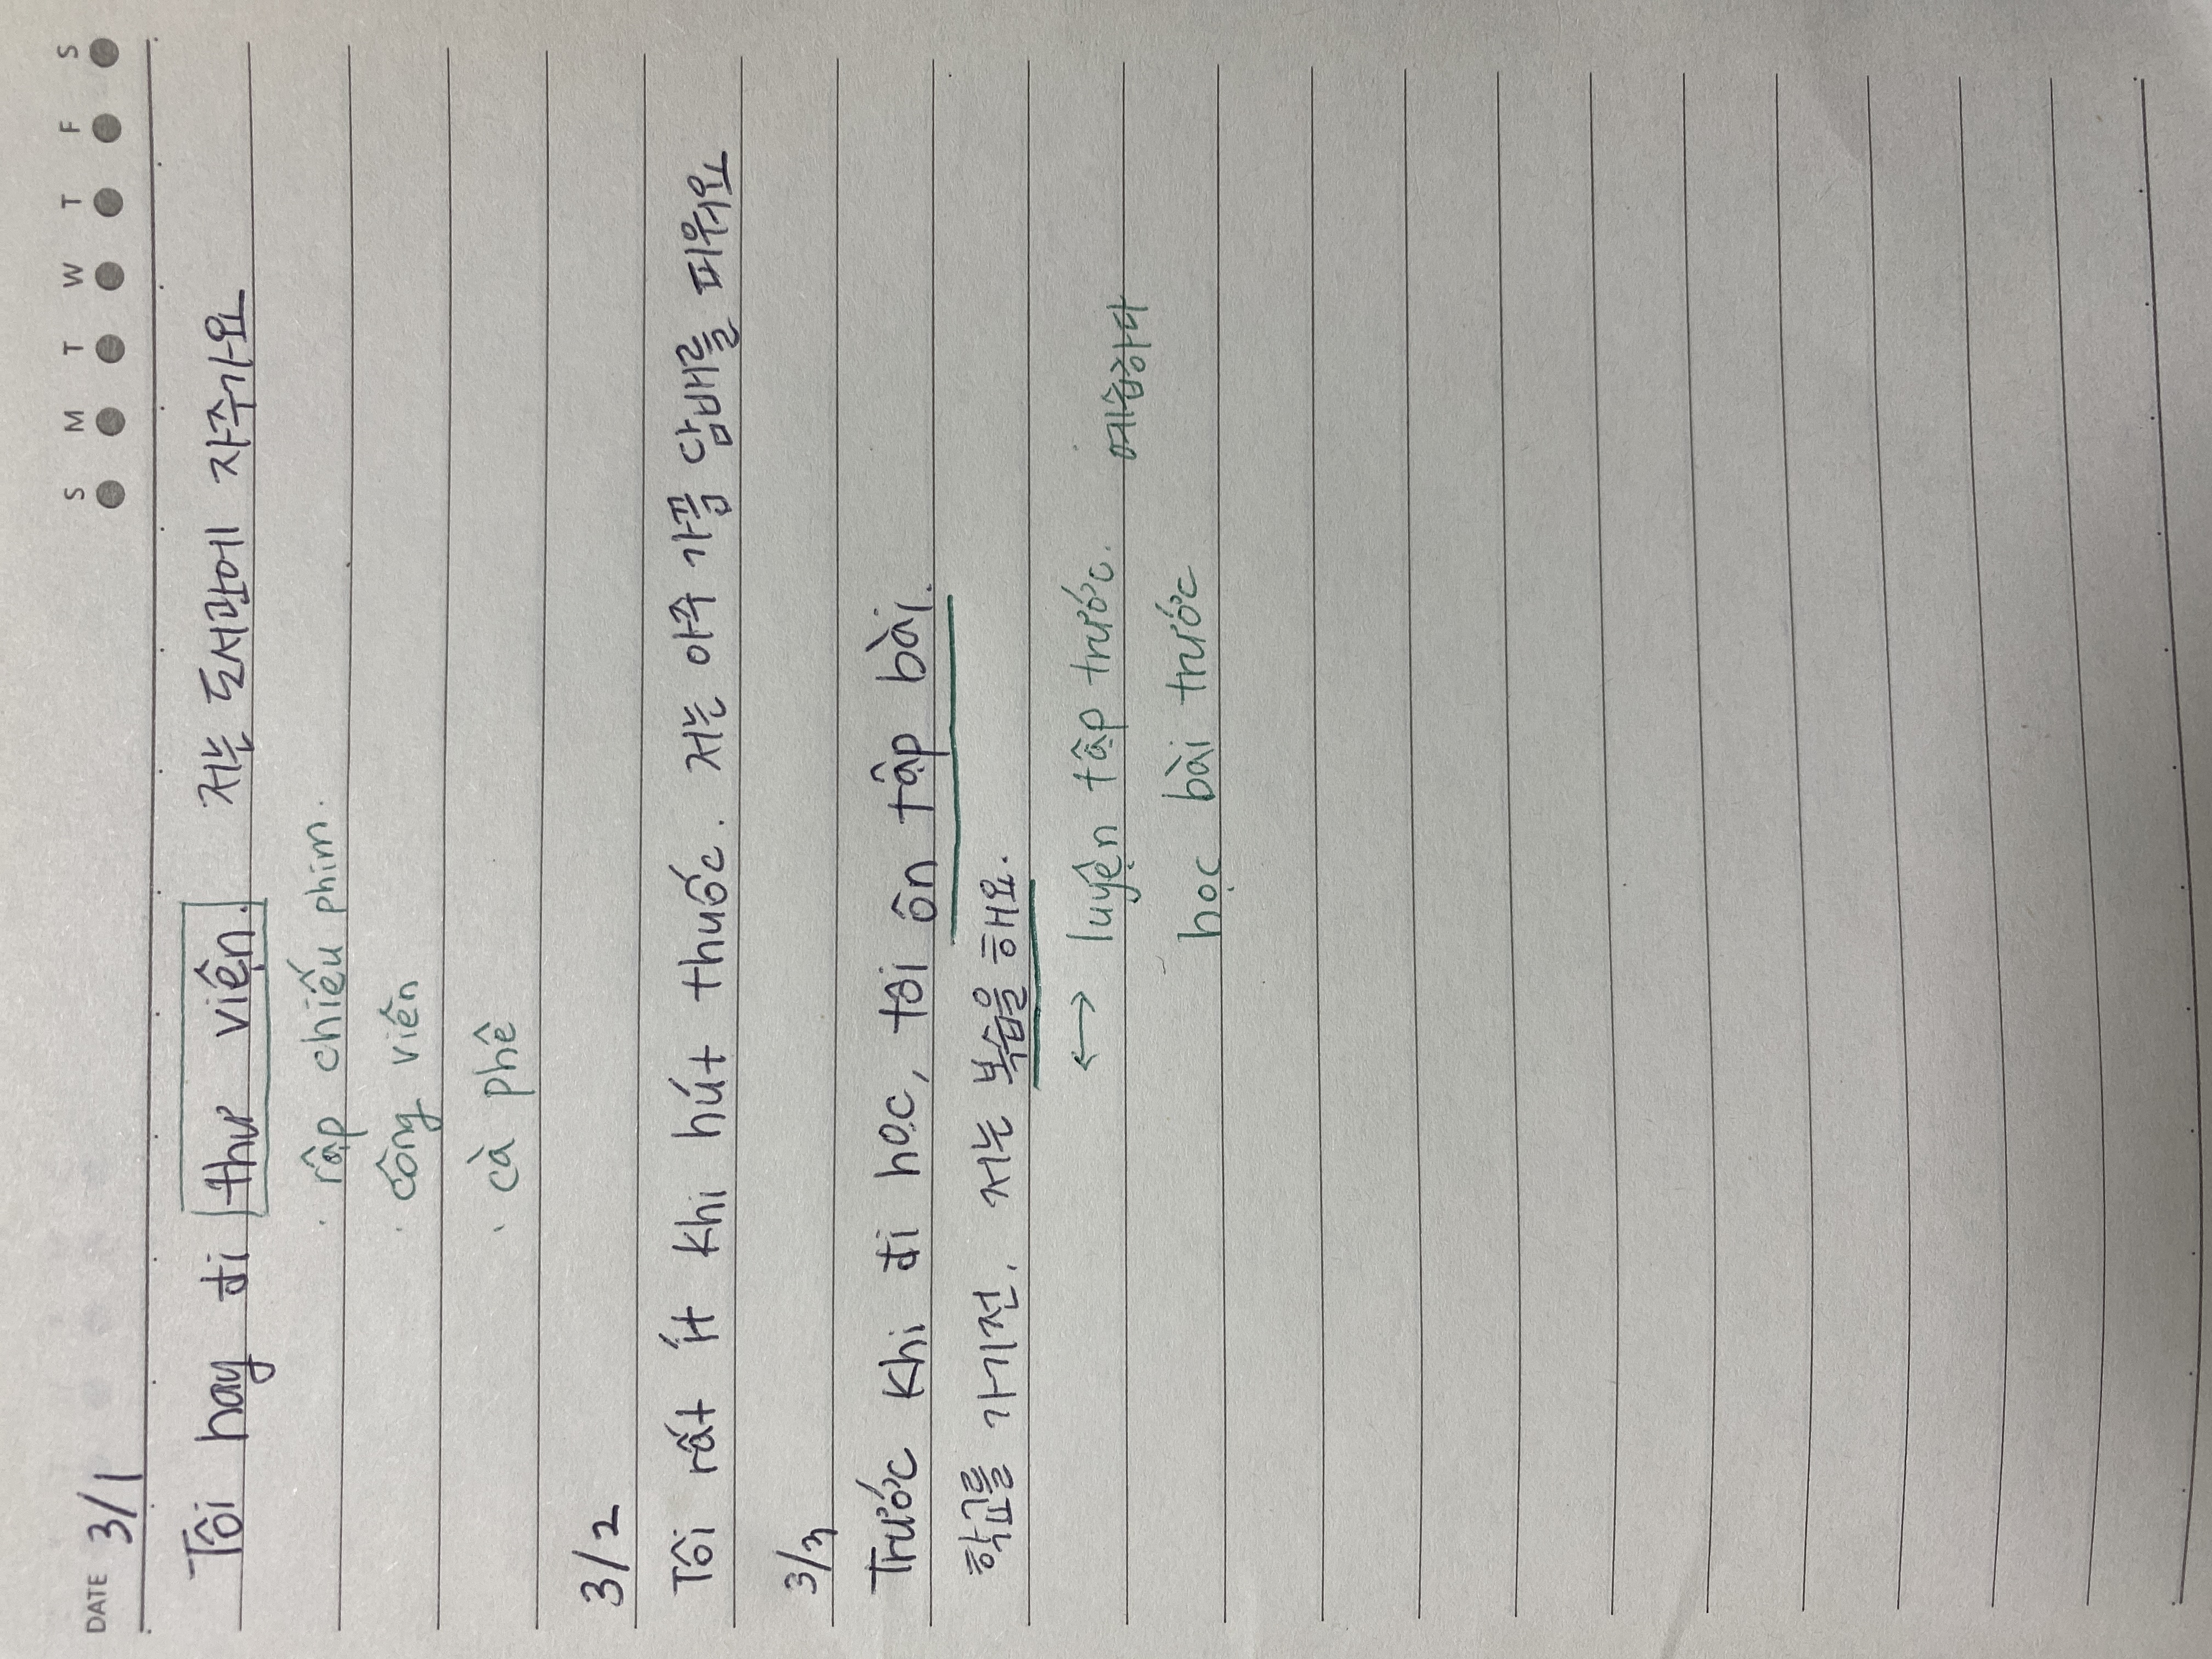 DATE 3/1 S M T W T F S
Tôi hay đi thư viện. 저는 도서관에 자주가요
· rập chiếu phim.
· công viên
· cà phê
3/2
Tôi rất ít khi hút thuốc. 저는 아주 가끔 담배를 피워요
3/3
Trước khi đi học, tôi ôn tập bài.
학교를 가기전, 저는 복습을 해요.
↔ luyện tập trước. 예습하다
học bài trước